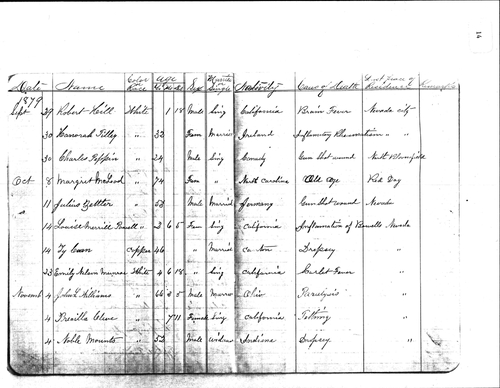 14
Date Name Color Race Age Sex Married Single Nativity Cause of Death Last Place of Residence
1879
Sept 29 Robert Hill White 1 18 Male Sing California Brain Fever Nevada city
30 Hanorah Tilly " 32 Fem Married Ireland Inflamatory Rheumatism "
30 Charles Peppin " 24 Male Sing Canady Gun Shot wound North Bloomfield
Oct 8 Margret " 74 Fem " North Caroline Old age Red Dog
11 Julius Zettler " 53 Male Married Germany Gun Shot wound Nevada
14 Lowell Merrill " 2 6 5 Fem Sing California Inflamation of Bowells Nevada
14 Copper 46 " Married Dropsy "
23 Emily Nelson White 4 6 18 " Sing California Fever "
Novemb 4 John Williams " 66 2 5 Male Ohio Paralysis "
4 " 7 11 Female Sing California "
4 Noble " 52 Male Indiana Dropsy "